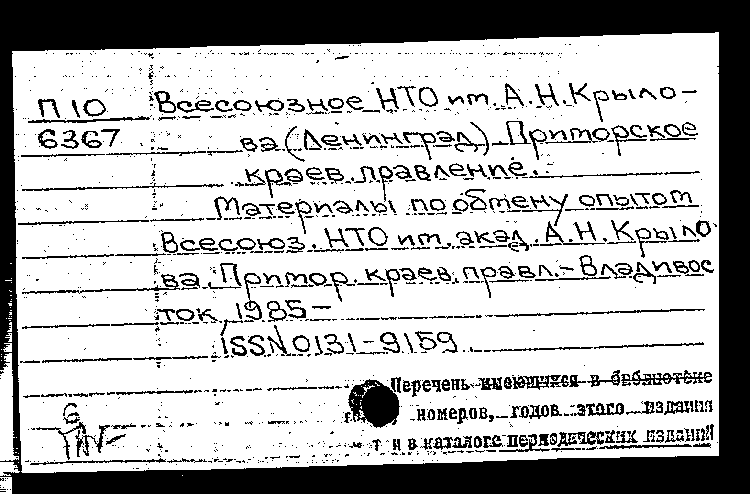 П 10 Всесоюзное НТО им. А.Н. Крыло-
6367 ва (Ленинград). Приморское
краев. правление.
Материалы по обмену опытом
Всесоюз. НТО им. акад. А.Н. Крыло
ва, Примор. краев. правл. - Владивос
ток, 1985 -
ISSN 0131-9159.
Перечень имеющихся в библиотеке
номеров, годов этого издания
и в каталоге периодических изданий